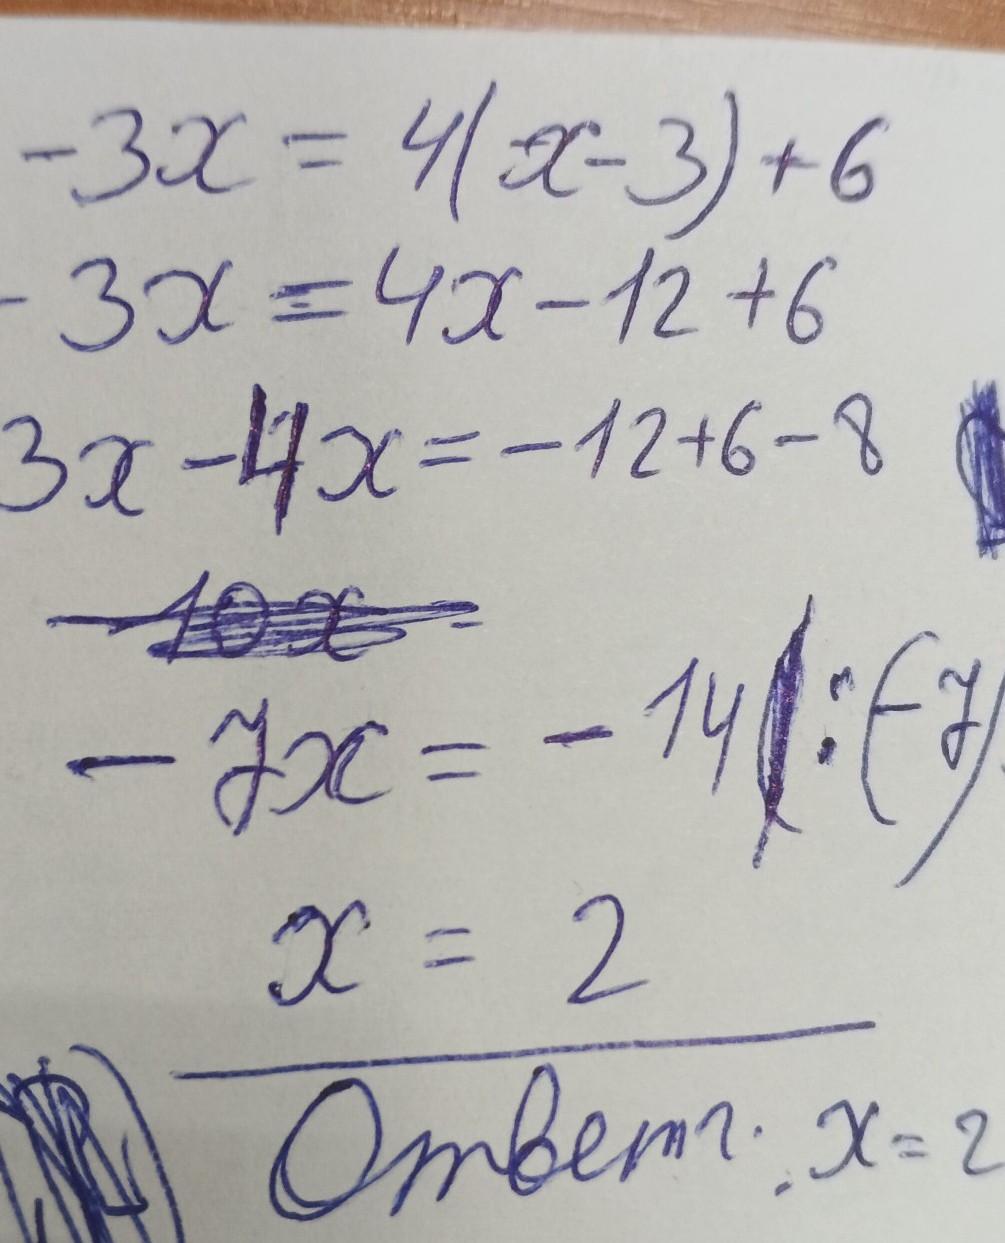 -3x = 4(x-3)+6
-3x = 4x-12+6
3x-4x=-12+6-8
-7x = -14 | : (-7)
x = 2
Ответ: x=2